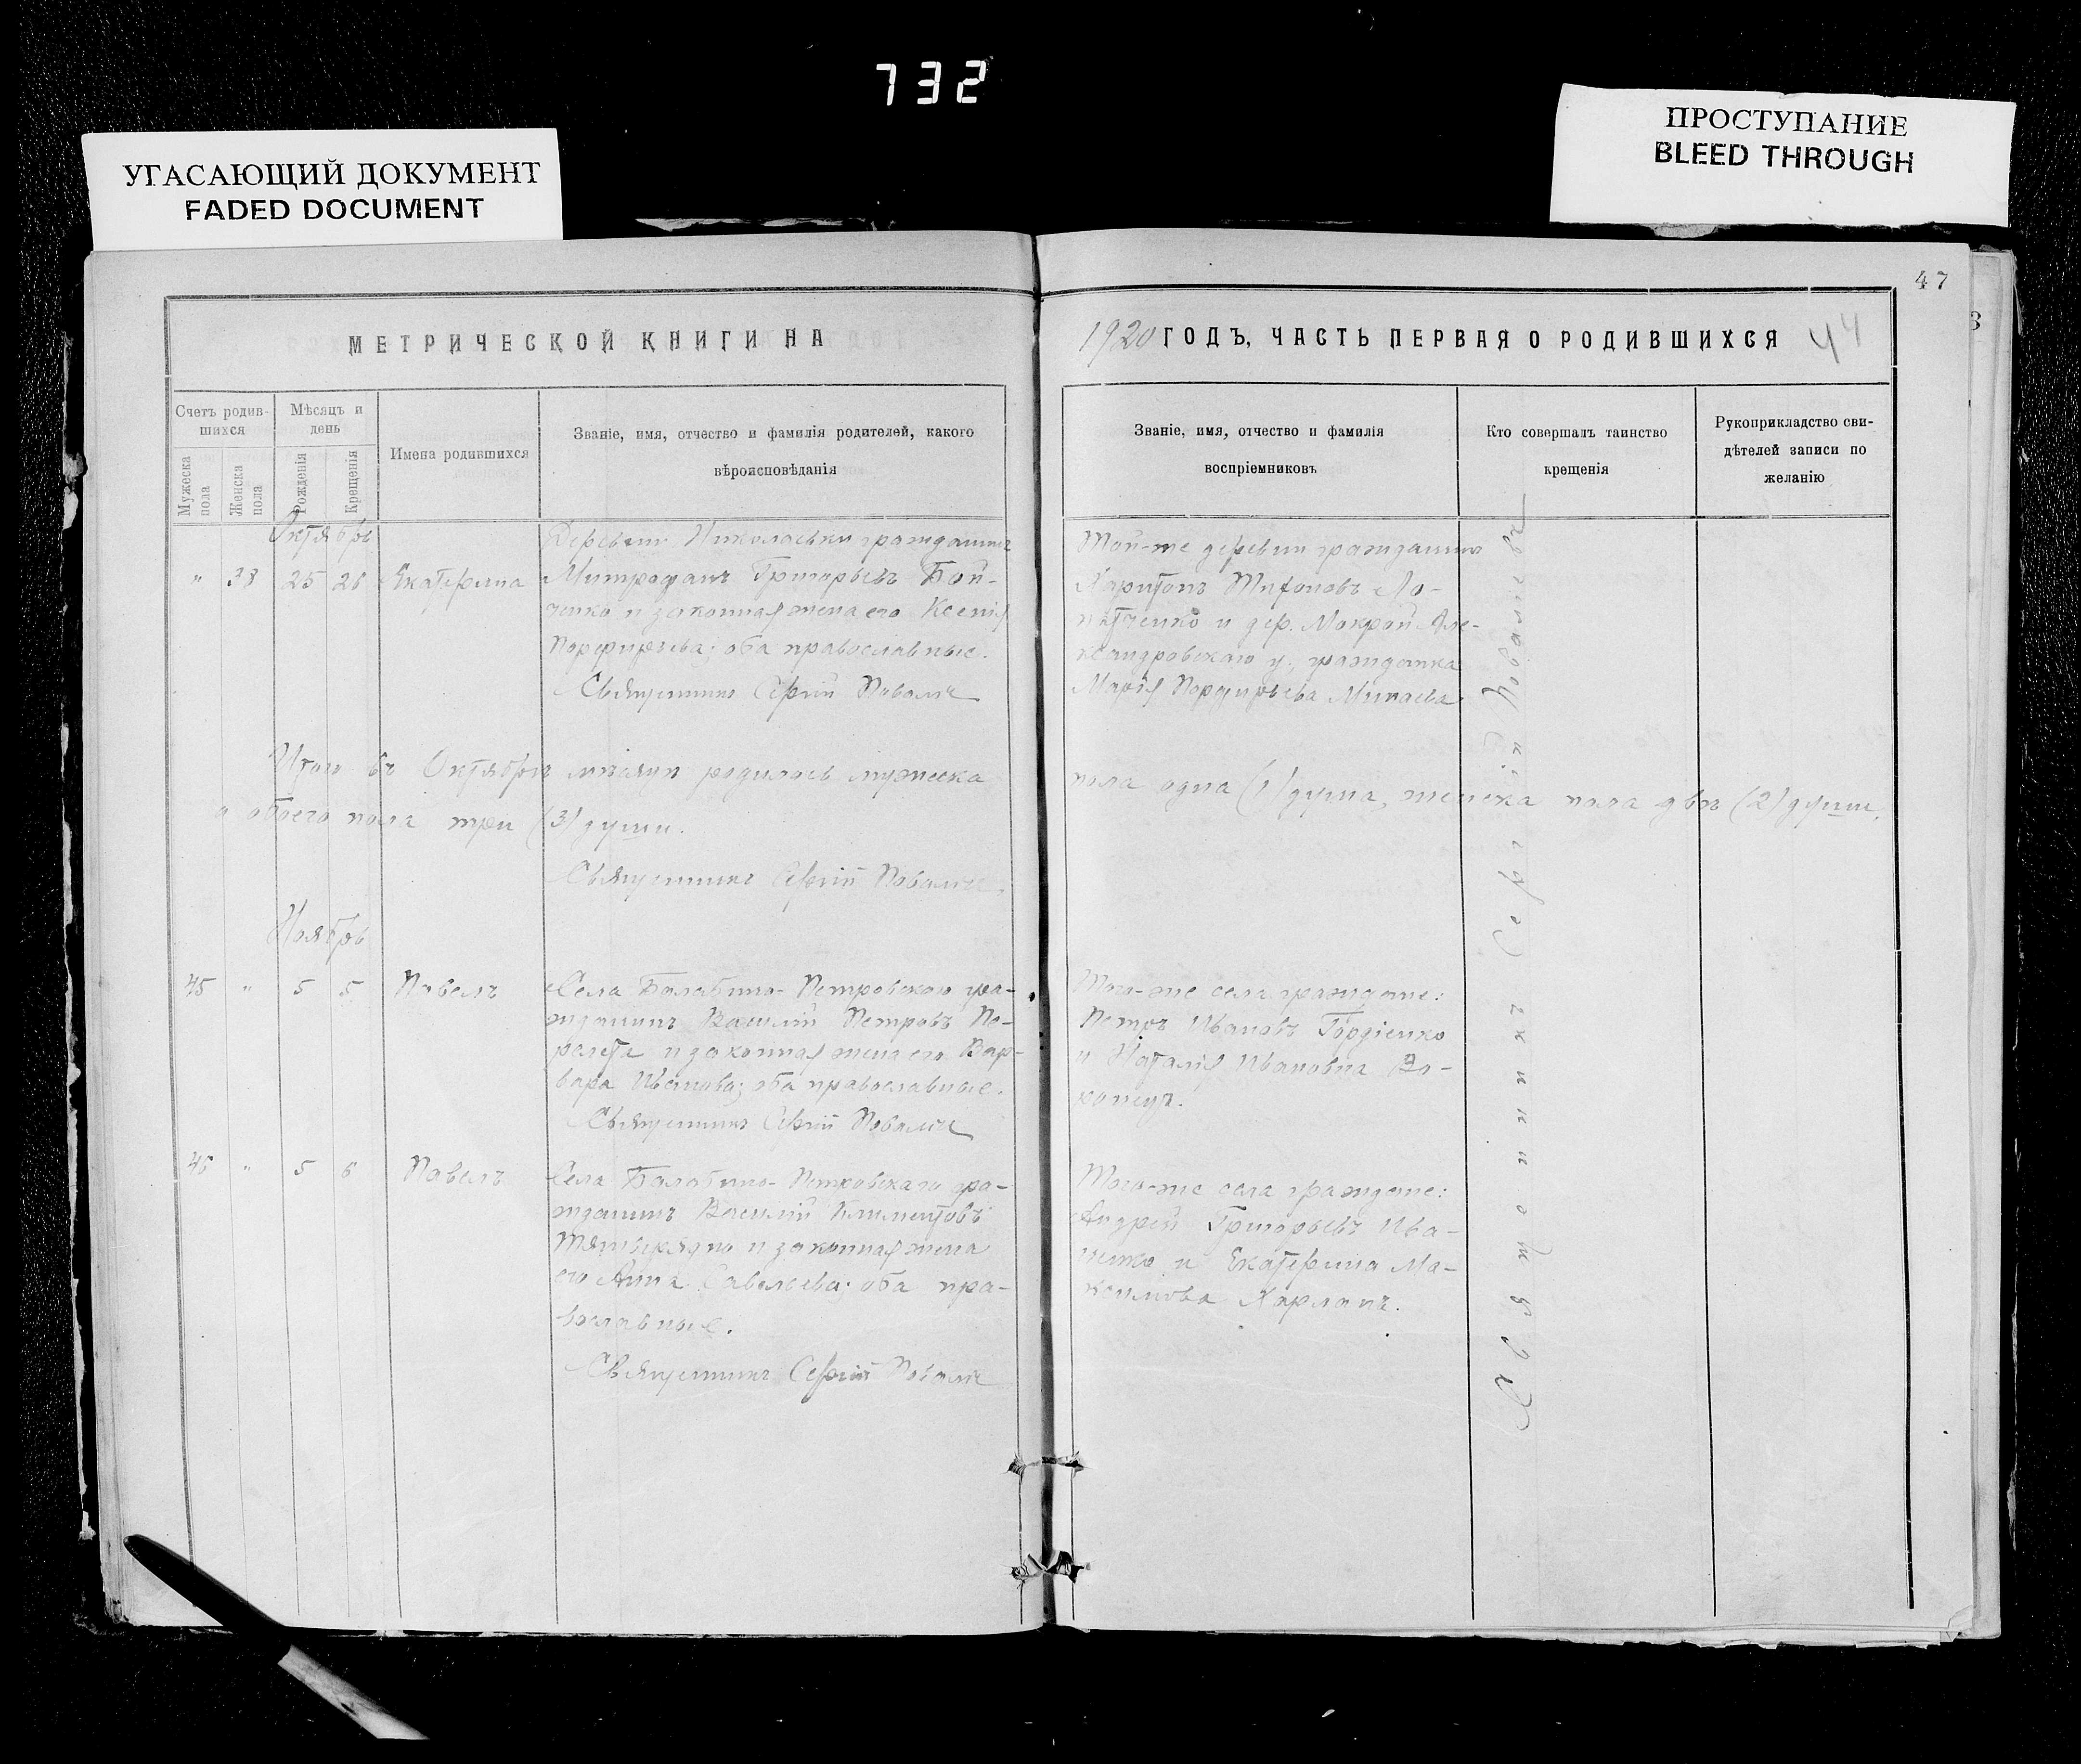 732
УГАСАЮЩИЙ ДОКУМЕНТ
FADED DOCUMENT
ПРОСТУПАНИЕ
BLEED THROUGH
47
МЕТРИЧЕСКОЙ КНИГИ НА
1920 ГОДЪ, ЧАСТЬ ПЕРВАЯ О РОДИВШИХСЯ
44
Счетъ родив-
шихся
Мѣсяцъ и
день
Мужеска
пола
Женска
пола
Рожденія
Крещенія
Имена родившихся
Званіе, имя, отчество и фамилія родителей, какого
вѣроисповѣданія
Званіе, имя, отчество и фамилія
воспріемниковъ
Кто совершалъ таинство
крещенія
Рукоприкладство сви-
дѣтелей записи по
желанію
Октябрь
" 38 25 26 Екатерина
Деревни Николаевки гражданинъ
Митрофанъ Григорьевъ Бой-
ченко и законная жена его Ксенія
Порфирьева; оба православные.
Священникъ Сергій
Той-же деревни гражданинъ
Харитонъ Тихоновъ
и дер. Мокрой Але-
ксандровскаго у. гражданка
Марія Порфирьева Минаева
Итого въ Октябрѣ мѣсяцѣ родилось мужеска
пола одна (1) душа, женска пола двѣ (2) души,
а обоего пола три (3) души.
Священникъ Сергій
Ноябрь
45 " 5 5 Павелъ
Села Балабино-Петровскаго гра-
жданинъ Василій Петровъ
и законная жена его Вар-
вара Иванова; оба православные.
Священникъ Сергій
Того-же села граждане:
Петръ Ивановъ Гордіенко
и Наталія Ивановна
46 " 5 6 Павелъ
Села Балабино-Петровскаго гра-
жданинъ Василій Климентовъ
и законная жена
его Анна Савельева; оба пра-
вославные.
Священникъ Сергій
Того-же села граждане:
Андрей Григорьевъ Ива-
щенко и Екатерина Ма-
ксимова Харланъ.
Священникъ Сергій